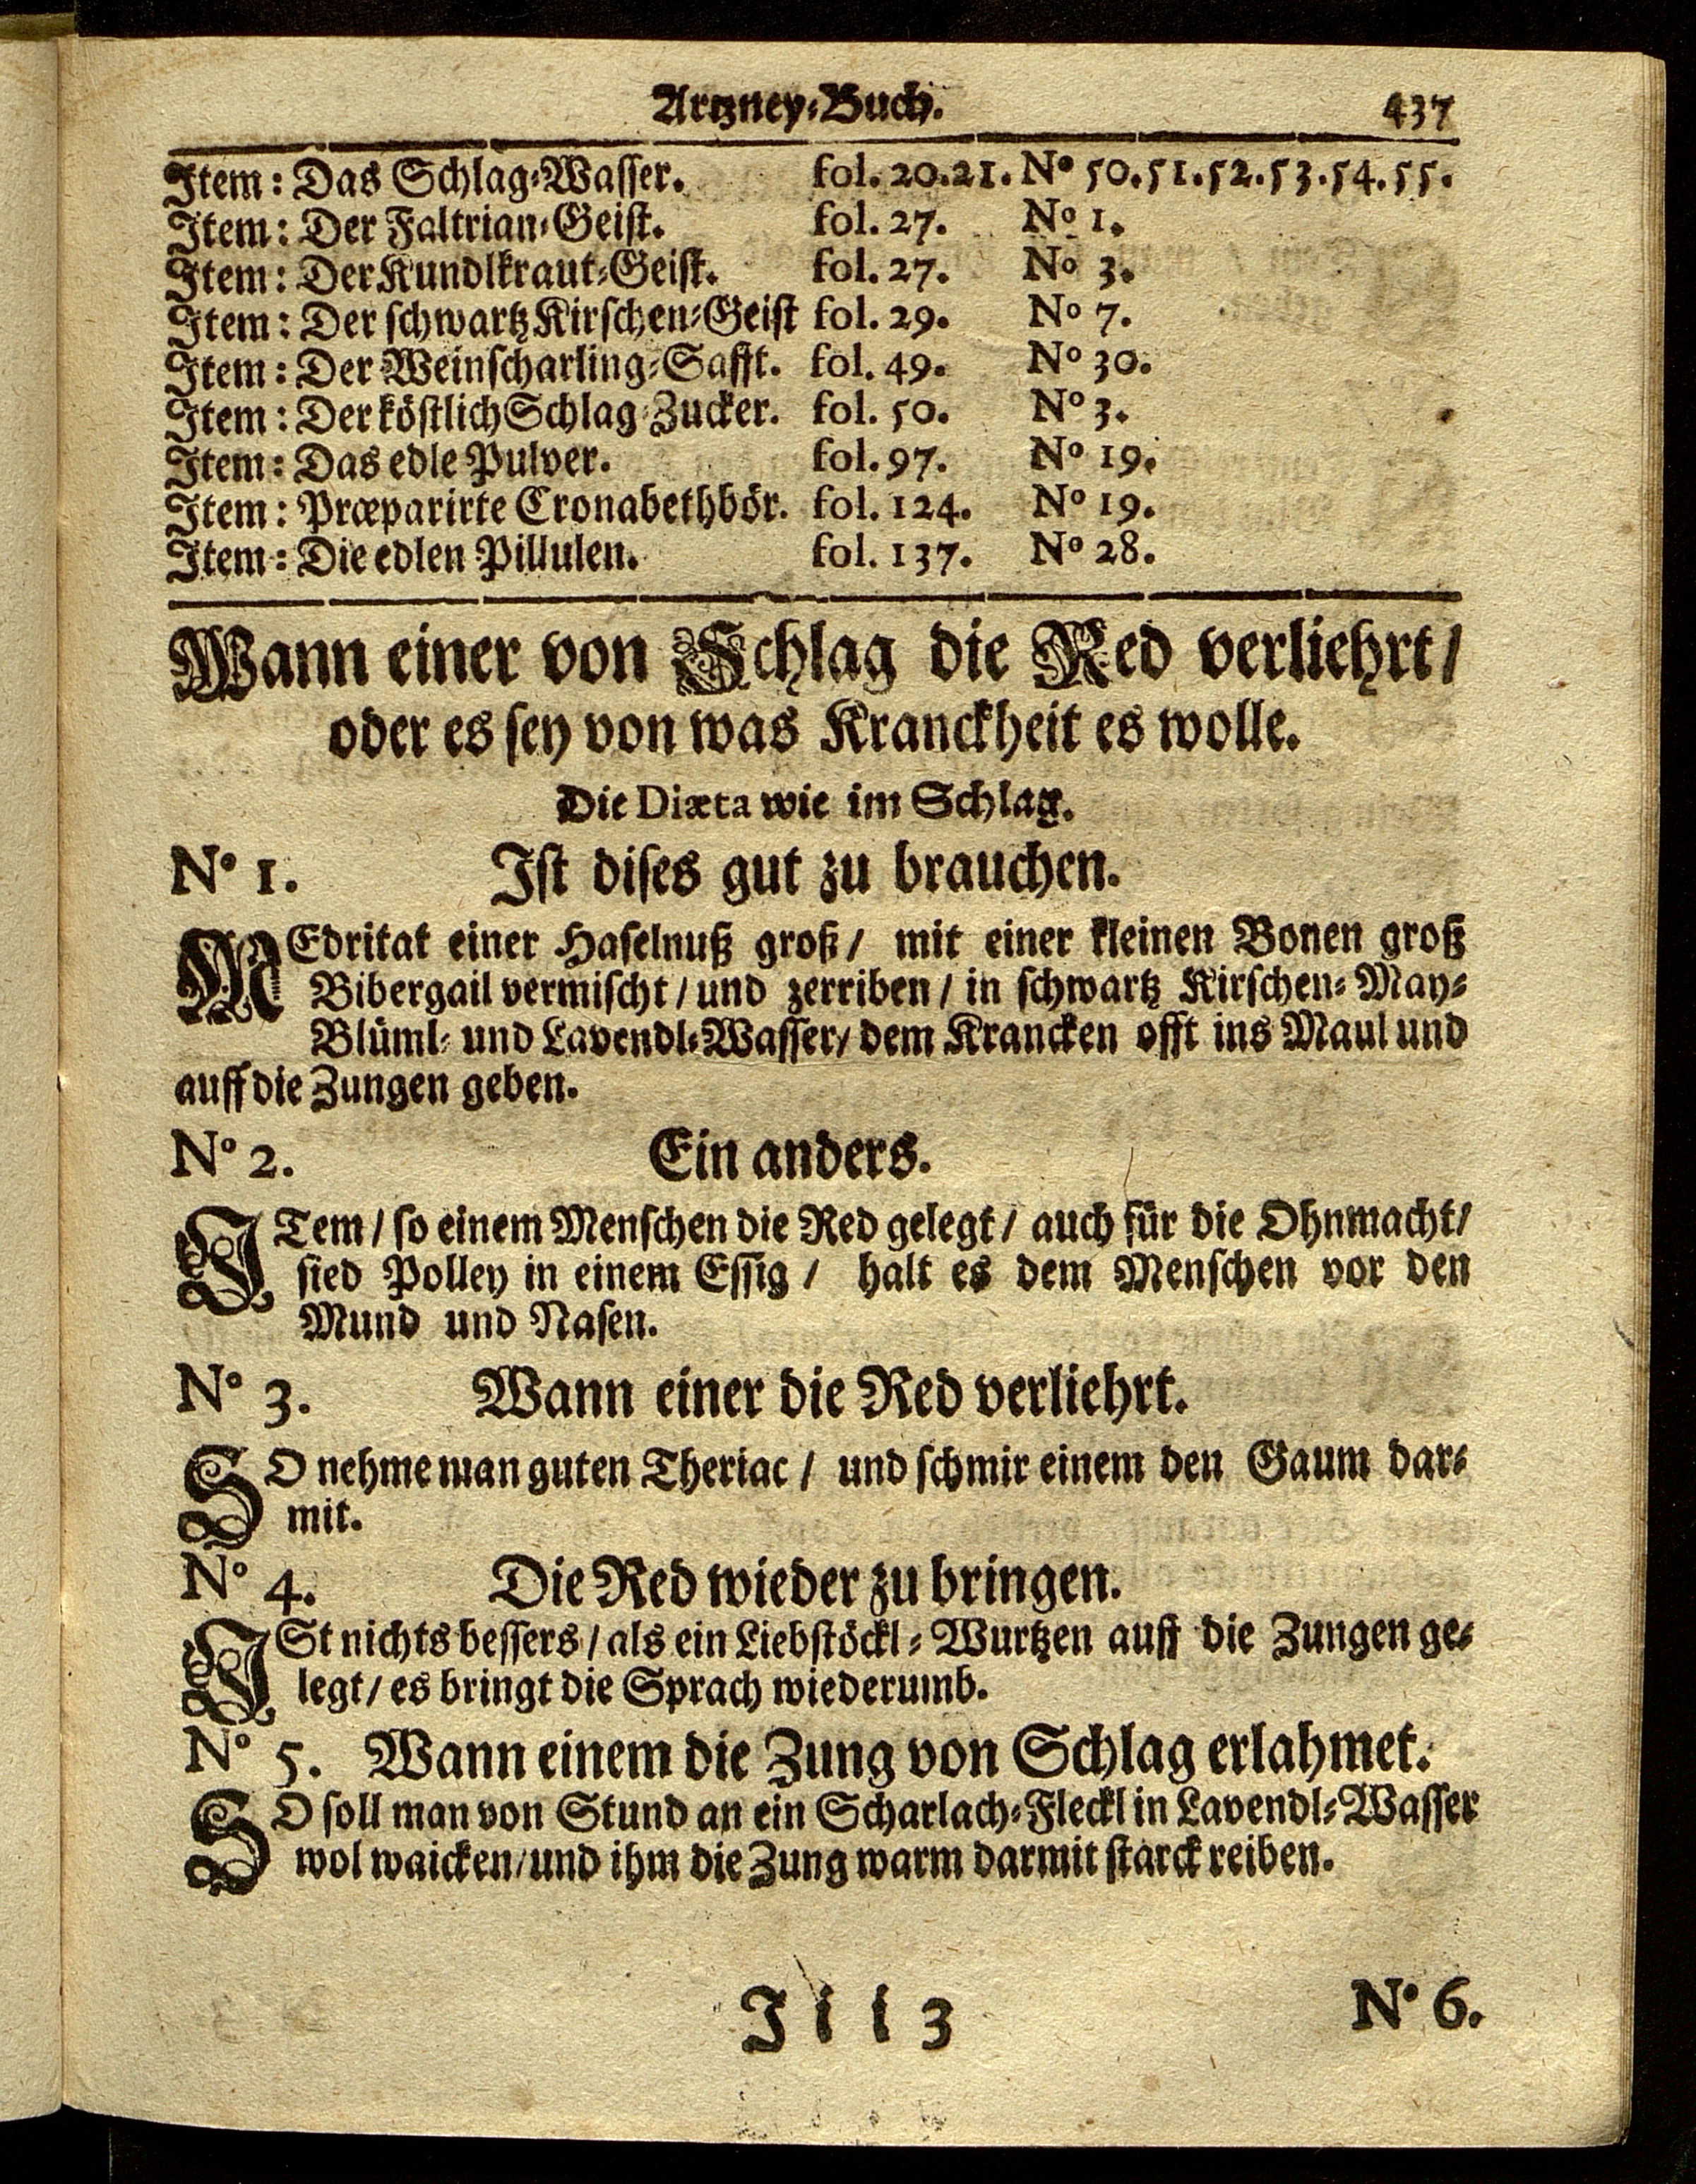 Artzney-Buch. 437
Item: Das Schlag-Wasser. fol. 20.21. No 50.51.52.53.54.55.
Item: Der Faltrian-Geist. fol. 27. No 1.
Item: Der Kundlkraut-Geist. fol. 27. No 3.
Item: Der schwartz Kirschen-Geist fol. 29. No 7.
Item: Der Weinscharling-Safft. fol. 49. No 30.
Item: Der köstlich Schlag-Zucker. fol. 50. No 3.
Item: Das edle Pulver. fol. 97. No 19.
Item: Præparirte Cronabethbör. fol. 124. No 19.
Item: Die edlen Pillulen. fol. 137. No 28.
Wann einer von Schlag die Red verliehrt/
oder es sey von was Kranckheit es wolle.
Die Diæta wie im Schlag.
No 1. Ist dises gut zu brauchen.
MEdritat einer Haselnuß groß/ mit einer kleinen Bonen groß
Bibergail vermischt/ und zerriben/ in schwartz Kirschen- May-
Blüml- und Lavendl-Wasser/ dem Krancken offt ins Maul und
auff die Zungen geben.
No 2. Ein anders.
ITem/ so einem Menschen die Red gelegt/ auch für die Ohnmacht/
sied Polley in einem Essig/ halt es dem Menschen vor den
Mund und Nasen.
No 3. Wann einer die Red verliehrt.
SO nehme man guten Theriac/ und schmir einem den Gaum dar-
mit.
No 4. Die Red wieder zu bringen.
ISt nichts bessers/ als ein Liebstöckl-Wurtzen auff die Zungen ge-
legt/ es bringt die Sprach wiederumb.
No 5. Wann einem die Zung von Schlag erlahmet.
SO soll man von Stund an ein Scharlach-Fleckl in Lavendl-Wasser
wol waicken/ und ihm die Zung warm darmit starck reiben.
Jii 3 No 6.